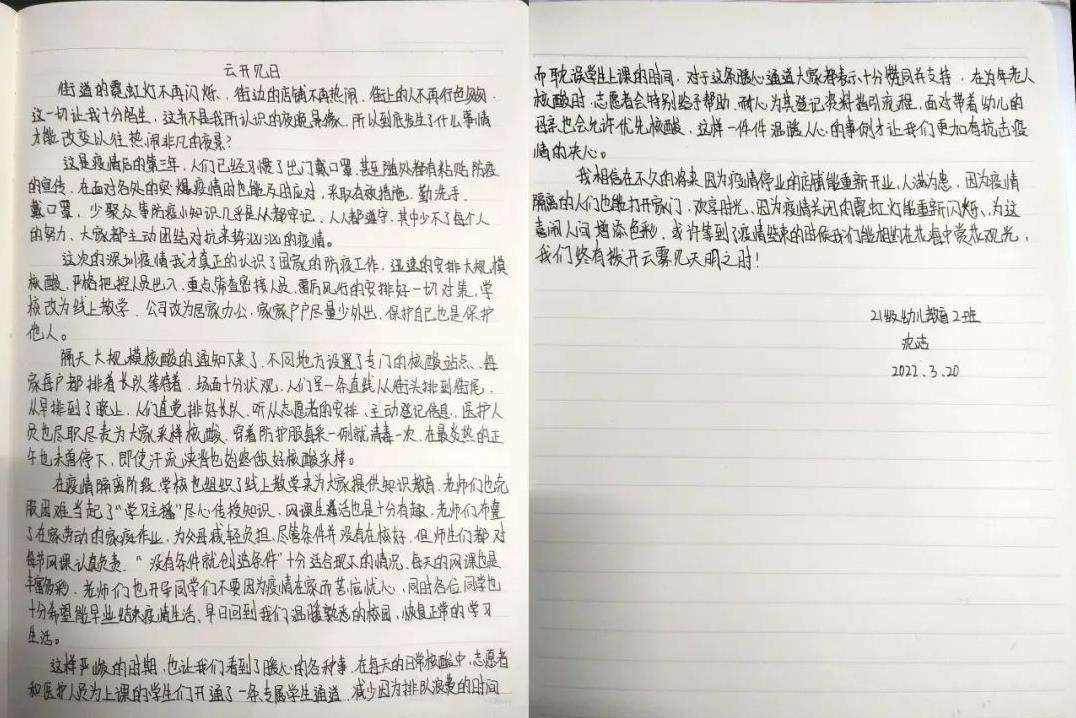 云开见日
街道的霓虹灯不再闪烁、街边的店铺不再热闹、街上的人不再行色匆匆
这一切让我十分陌生，这并不是我所认识的夜晚景像，所以到底发生了什么事情
才能改变以往热闹非凡的夜景？
这是疫情后的第三年，人们已经习惯了出门戴口罩，甚至随处都有粘贴防疫
的宣传，在面对各处的突爆疫情时也能及时应对，采取有效措施，勤洗手，
戴口罩，少聚众等防疫小知识几乎是从都牢记，人人都遵守，其中少不了每个人
的努力、大家都主动团结对抗来势汹汹的疫情。
这次的深圳疫情我才真正的认识了国家的防疫工作，迅速的安排大规模
核酸，严格把控人员出入，重点筛查密接人员，雷厉风行的安排好一切对策，学
校改为线上教学，公司改为居家办公，家家户户尽量少外出，保护自己也是保护
他人。
隔天大规模核酸的通知下来了，不同地方设置了专门的核酸站点、每
家每户都排着长队等待着，场面十分状观，人们呈一条直线从街头排到街尾，
从早排到了晚上，人们自觉排好长队、听从志愿者的安排、主动登记信息，医护人
员也尽职尽责为大家采样核酸，穿着防护服每采一例就消毒一次，在最炎热的正
午也未曾停下，即使汗流浃背也始终做好核酸采样。
在疫情隔离阶段，学校也组织了线上教学来为大家提供知识教育，老师们也克
服困难当起了“学习主播”尽心传授知识，网课生活也是十分有趣，老师们布置
了在家劳动的家庭作业，为父母减轻负担，尽管条件并没有在校好，但师生们都对
每节网课认真负责，“没有条件就创造条件”十分适合现下的情况，每天的网课也是
丰富多彩，老师们也开导同学们不要因为疫情在家而苦恼忧心，同时各位同学也
十分希望能早些结束疫情生活、早日回到我们温暖熟悉的校园，恢复正常的学习
生活。
这样严峻的时期，也让我们看到了暖心的各种事，在每天的日常核酸中，志愿者
和医护人员为上课的学生们开通了一条专属学生通道，减少因为排队浪费的时间
而耽误学生上课的时间，对于这条暖心通道大家都表示十分赞同并支持，在为年老人
核酸时，志愿者会特别给予帮助，耐心为其登记资料指引流程，面对带着幼儿的
母亲也会允许优先核酸，这样一件件温暖人心的事例才让我们更加有抗击疫
情的决心。
我相信在不久的将来因为疫情停业的店铺能重新开业，人满为患，因为疫情
隔离的人们也能打开家门，欢享时光，因为疫情关闭的霓虹灯能重新闪烁、为这
喜闹人间增添色彩，或许等到了疫情结束的时候我们能相约在花春中赏花观光，
我们终有拨开云雾见天明之时！
21级幼儿教育2班
沈洁
2022.3.20